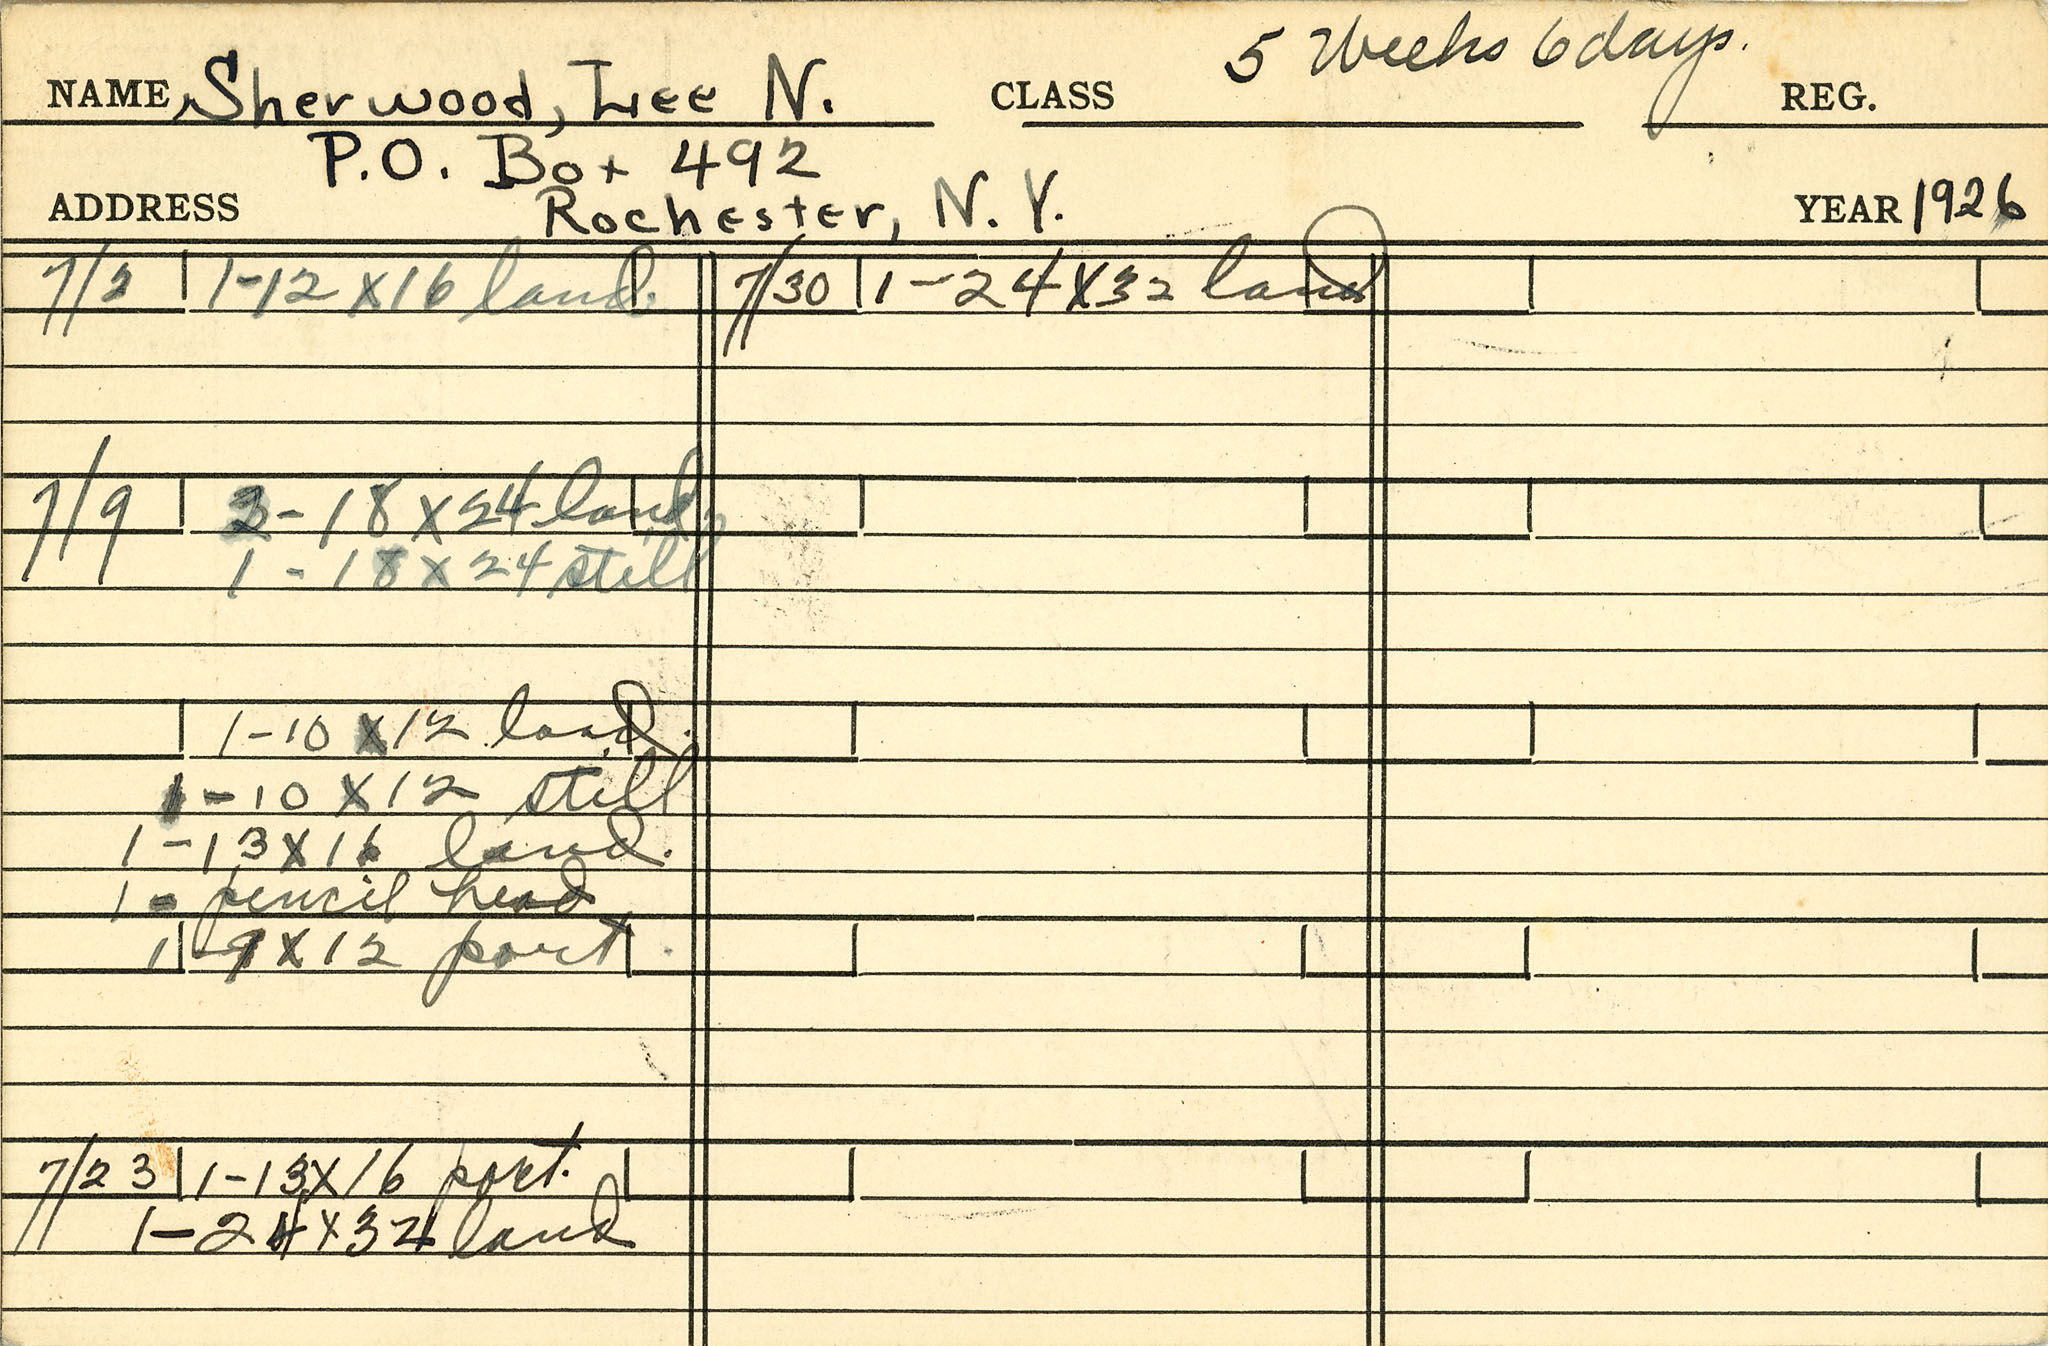 5 Weeks 6 days.
NAME Sherwood, Lee N. CLASS REG.
P.O. Box 492
ADDRESS Rochester, N.Y. YEAR 1926
7/2 1-12 x 16 land.
7/9 3 - 18 x 24 land,
1 - 18 x 24 still
1-10 x 12 land.
1-10 x 12 still
1-13 x 16 land.
1 - pencil head
1 - 9 x 12 port.
7/23 1-13 x 16 port.
1-24 x 34 land
7/30 1-24 x 32 land